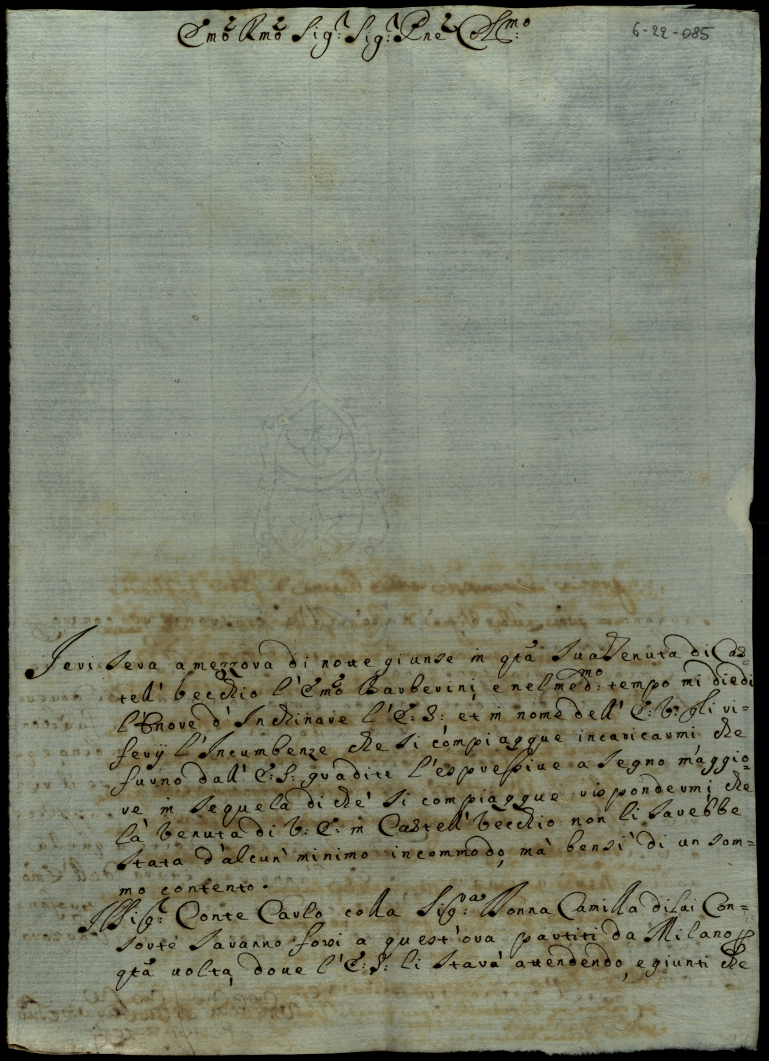 Emo Rmo Sig:r Sig:r Pne Colmo:
6-22-085
Ieri sera a mezz'ora di notte giunse in qta sua Tenuta di Cas=
tell' Vecchio l'Emo Barberini, e nel med:mo tempo mi diedi
l'honore d'Inchinare l'E: S: et in nome dell' E: V: gli ri=
ferij l'Incumbenze che si compiacque incaricarmi che
furno dall' E: S: gradite l'espressiue a segno maggio=
re in sequela di che si compiacque rispondermi che
la venuta di V: E: in Castell' Vecchio non li sarebbe
stata d'alcun' minimo incommodo, mà bensì di un som=
mo contento.
Il Sig:r Conte Carlo colla Sig:ra Donna Camilla di lui Con=
sorte saranno forsi a quest'ora partiti da Milano p
qta uolta, doue l'E: S: li starà attendendo, e giunti che